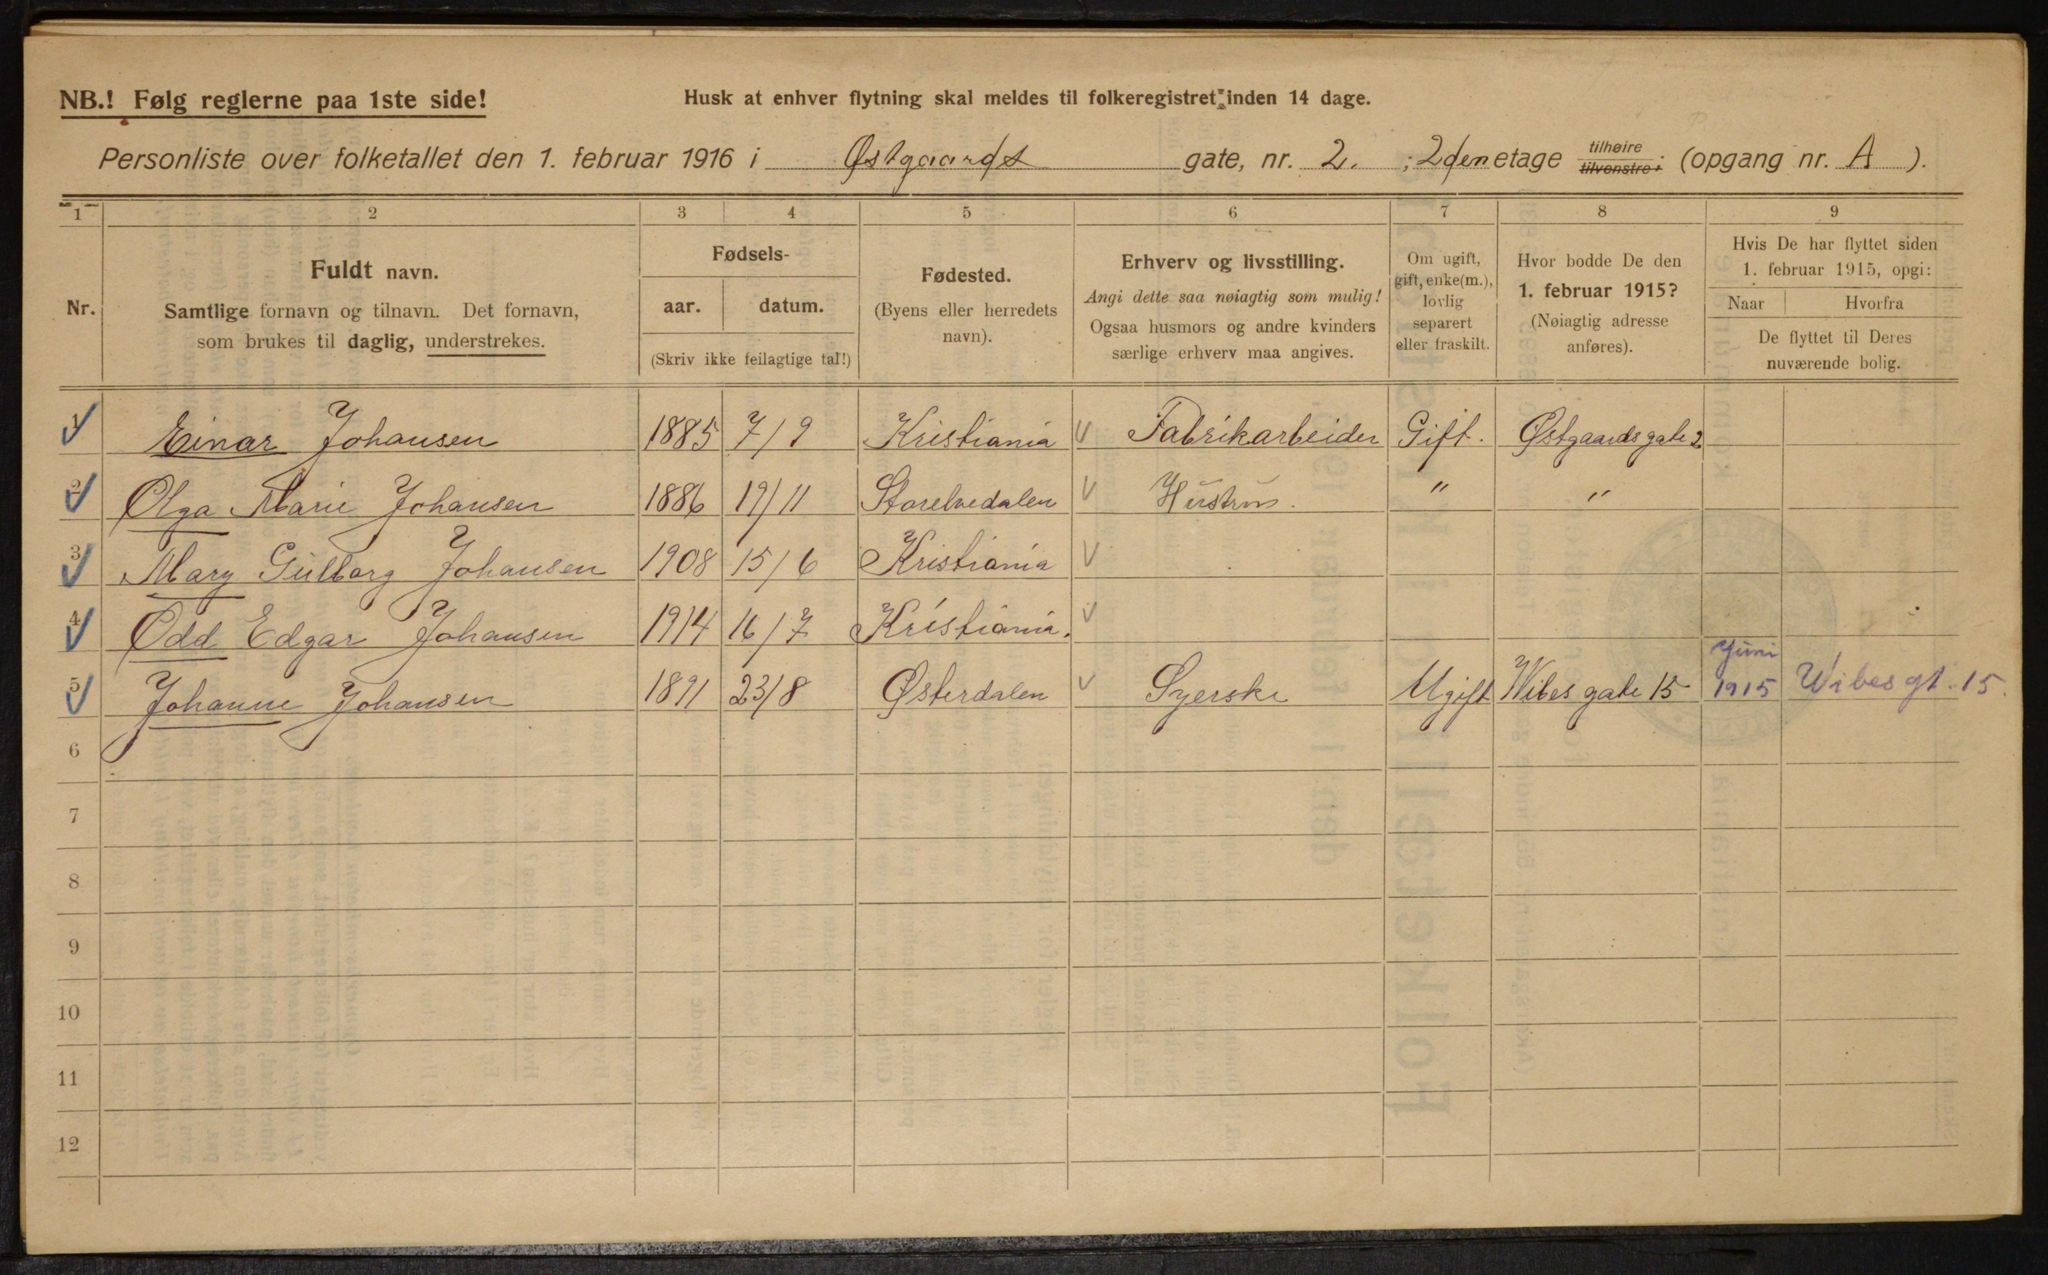 NB.! Følg reglerne paa 1ste side!
Husk at enhver flytning skal meldes til folkeregistret inden 14 dage.
Personliste over folketallet den 1. februar 1916 i Østgaards gate, nr. 2. ; 2den etage tilhøire tilvenstre; (opgang nr. A ).
1 2 3 4 5 6 7 8 9
Nr.
Fuldt navn.
Samtlige fornavn og tilnavn. Det fornavn,
som brukes til daglig, understrekes.
Fødsels-
aar. datum.
(Skriv ikke feilagtige tal!)
Fødested.
(Byens eller herredets
navn).
Erhverv og livsstilling.
Angi dette saa nøiagtig som mulig!
Ogsaa husmors og andre kvinders
særlige erhverv maa angives.
Om ugift,
gift, enke(m.),
lovlig
separert
eller fraskilt.
Hvor bodde De den
1. februar 1915?
(Nøiagtig adresse
anføres).
Hvis De har flyttet siden
1. februar 1915, opgi:
Naar Hvorfra
De flyttet til Deres
nuværende bolig.
1 Einar Johansen 1885 7/9 Kristiania Fabrikarbeider Gift. Østgaards gate 2
2 Olga Marie Johansen 1886 19/11 Storelvedalen Hustru. " "
3 Mary Gulborg Johansen 1908 15/6 Kristiania
4 Odd Edgar Johansen 1914 16/7 Kristiania.
5 Johanne Johansen 1891 23/8 Østerdalen Syerske Ugift Wibes gate 15 Juni 1915 Wibes gt. 15.
6
7
8
9
10
11
12